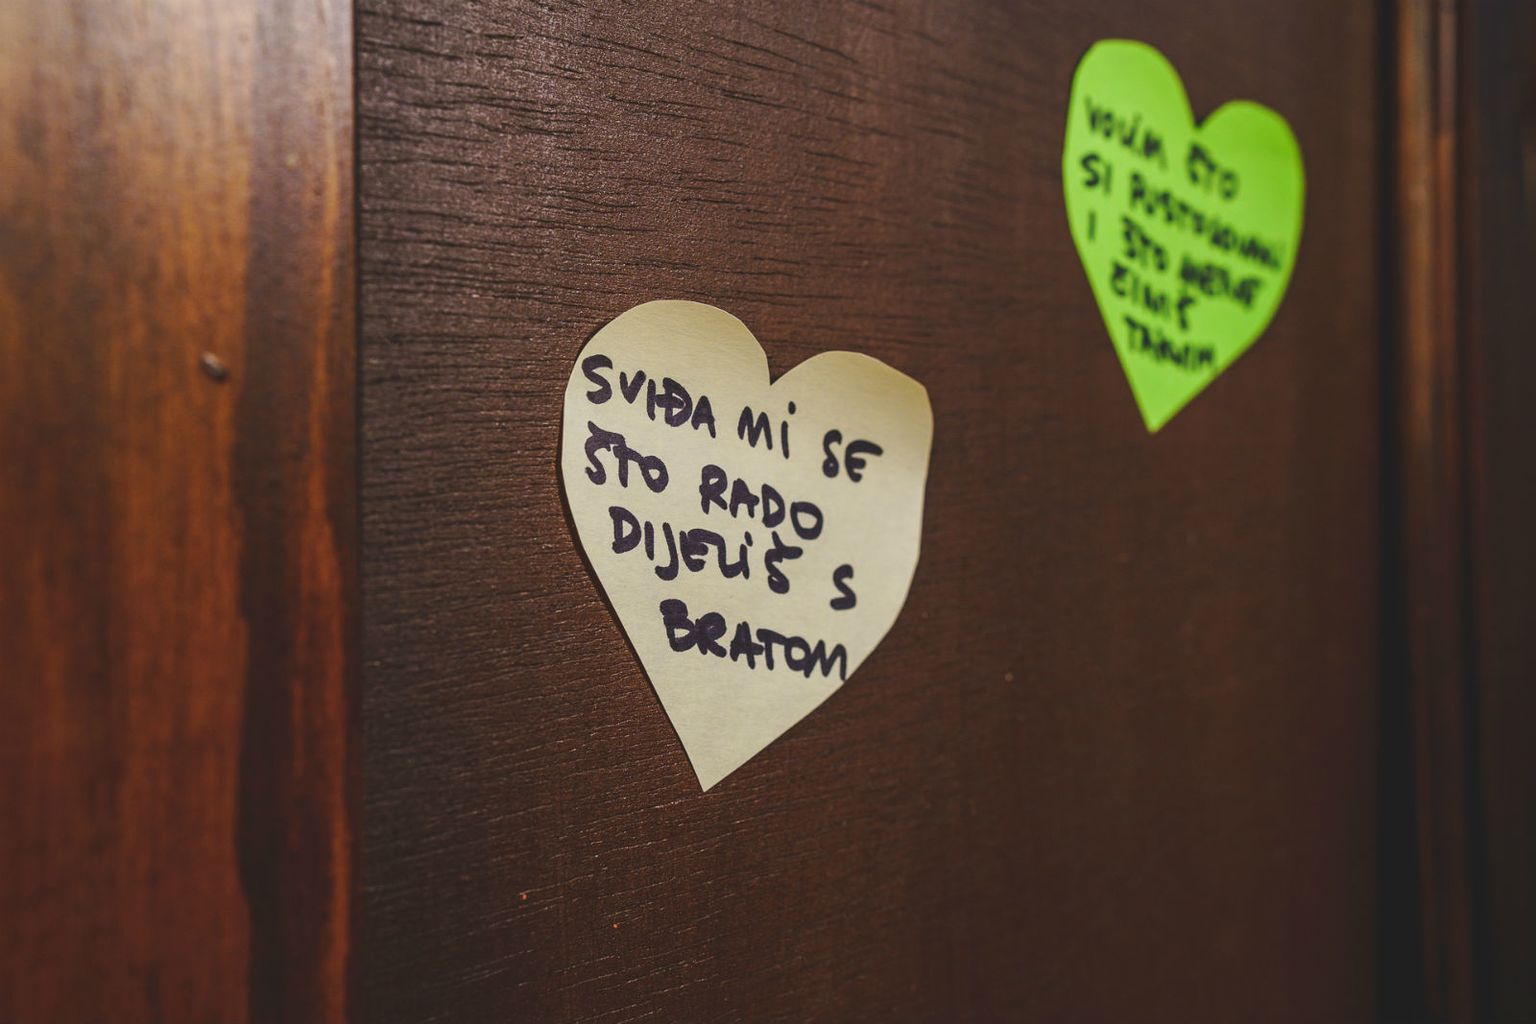 SVIĐA MI SE
ŠTO RADO
DIJELIŠ S
BRATOM
VOLIM ŠTO
SI PUSTOLOVAN
I ŠTO MENE
ČINIŠ
TAKVIM